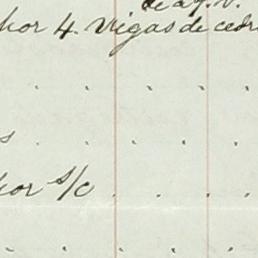 de a 7. v.
por 4. Vigas de cedr
s
por s/c